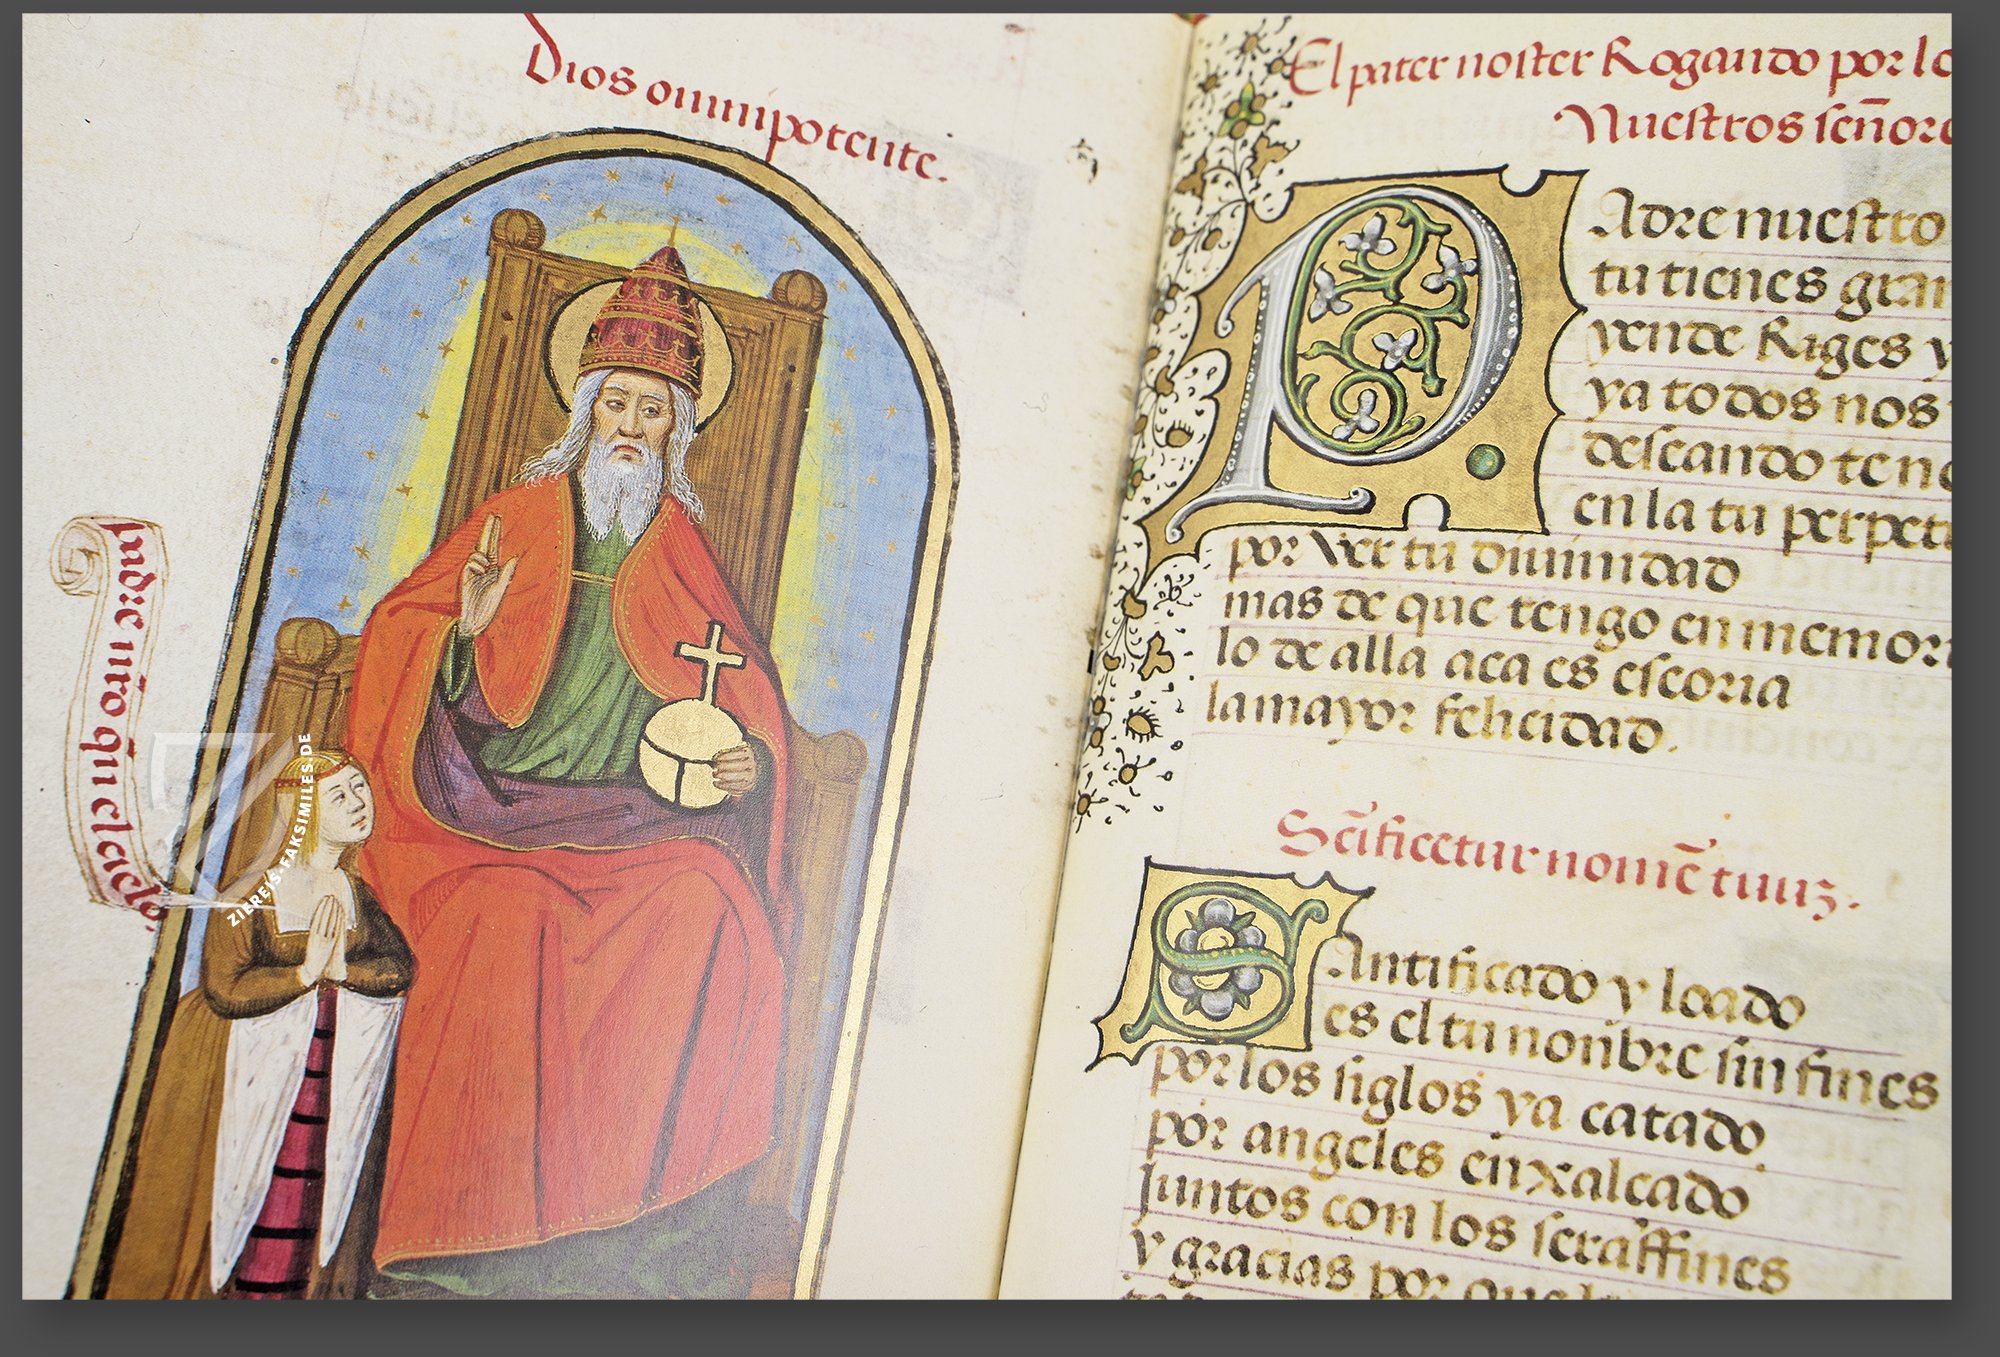 Dios omnipotente.
padre nr̃o q̃ in celo
El pater noster Rogando por lo
Nuestros señore
PAdre nuestro
tu tienes gran
yende Riges y
ya todos nos
deseando tene
en la tu perpetu
por ver tu diuinidad
mas de que tengo en memori
lo de alla aca es escoria
la mayor felicidad.
Scĩficetur nomẽ tuuz.
SAntificado y loado
es el tu nonbre sin fines
por los siglos ya catado
por angeles enxalcado
Juntos con los seraffines
y gracias por
ZIEREIS-FAKSIMILES.DE